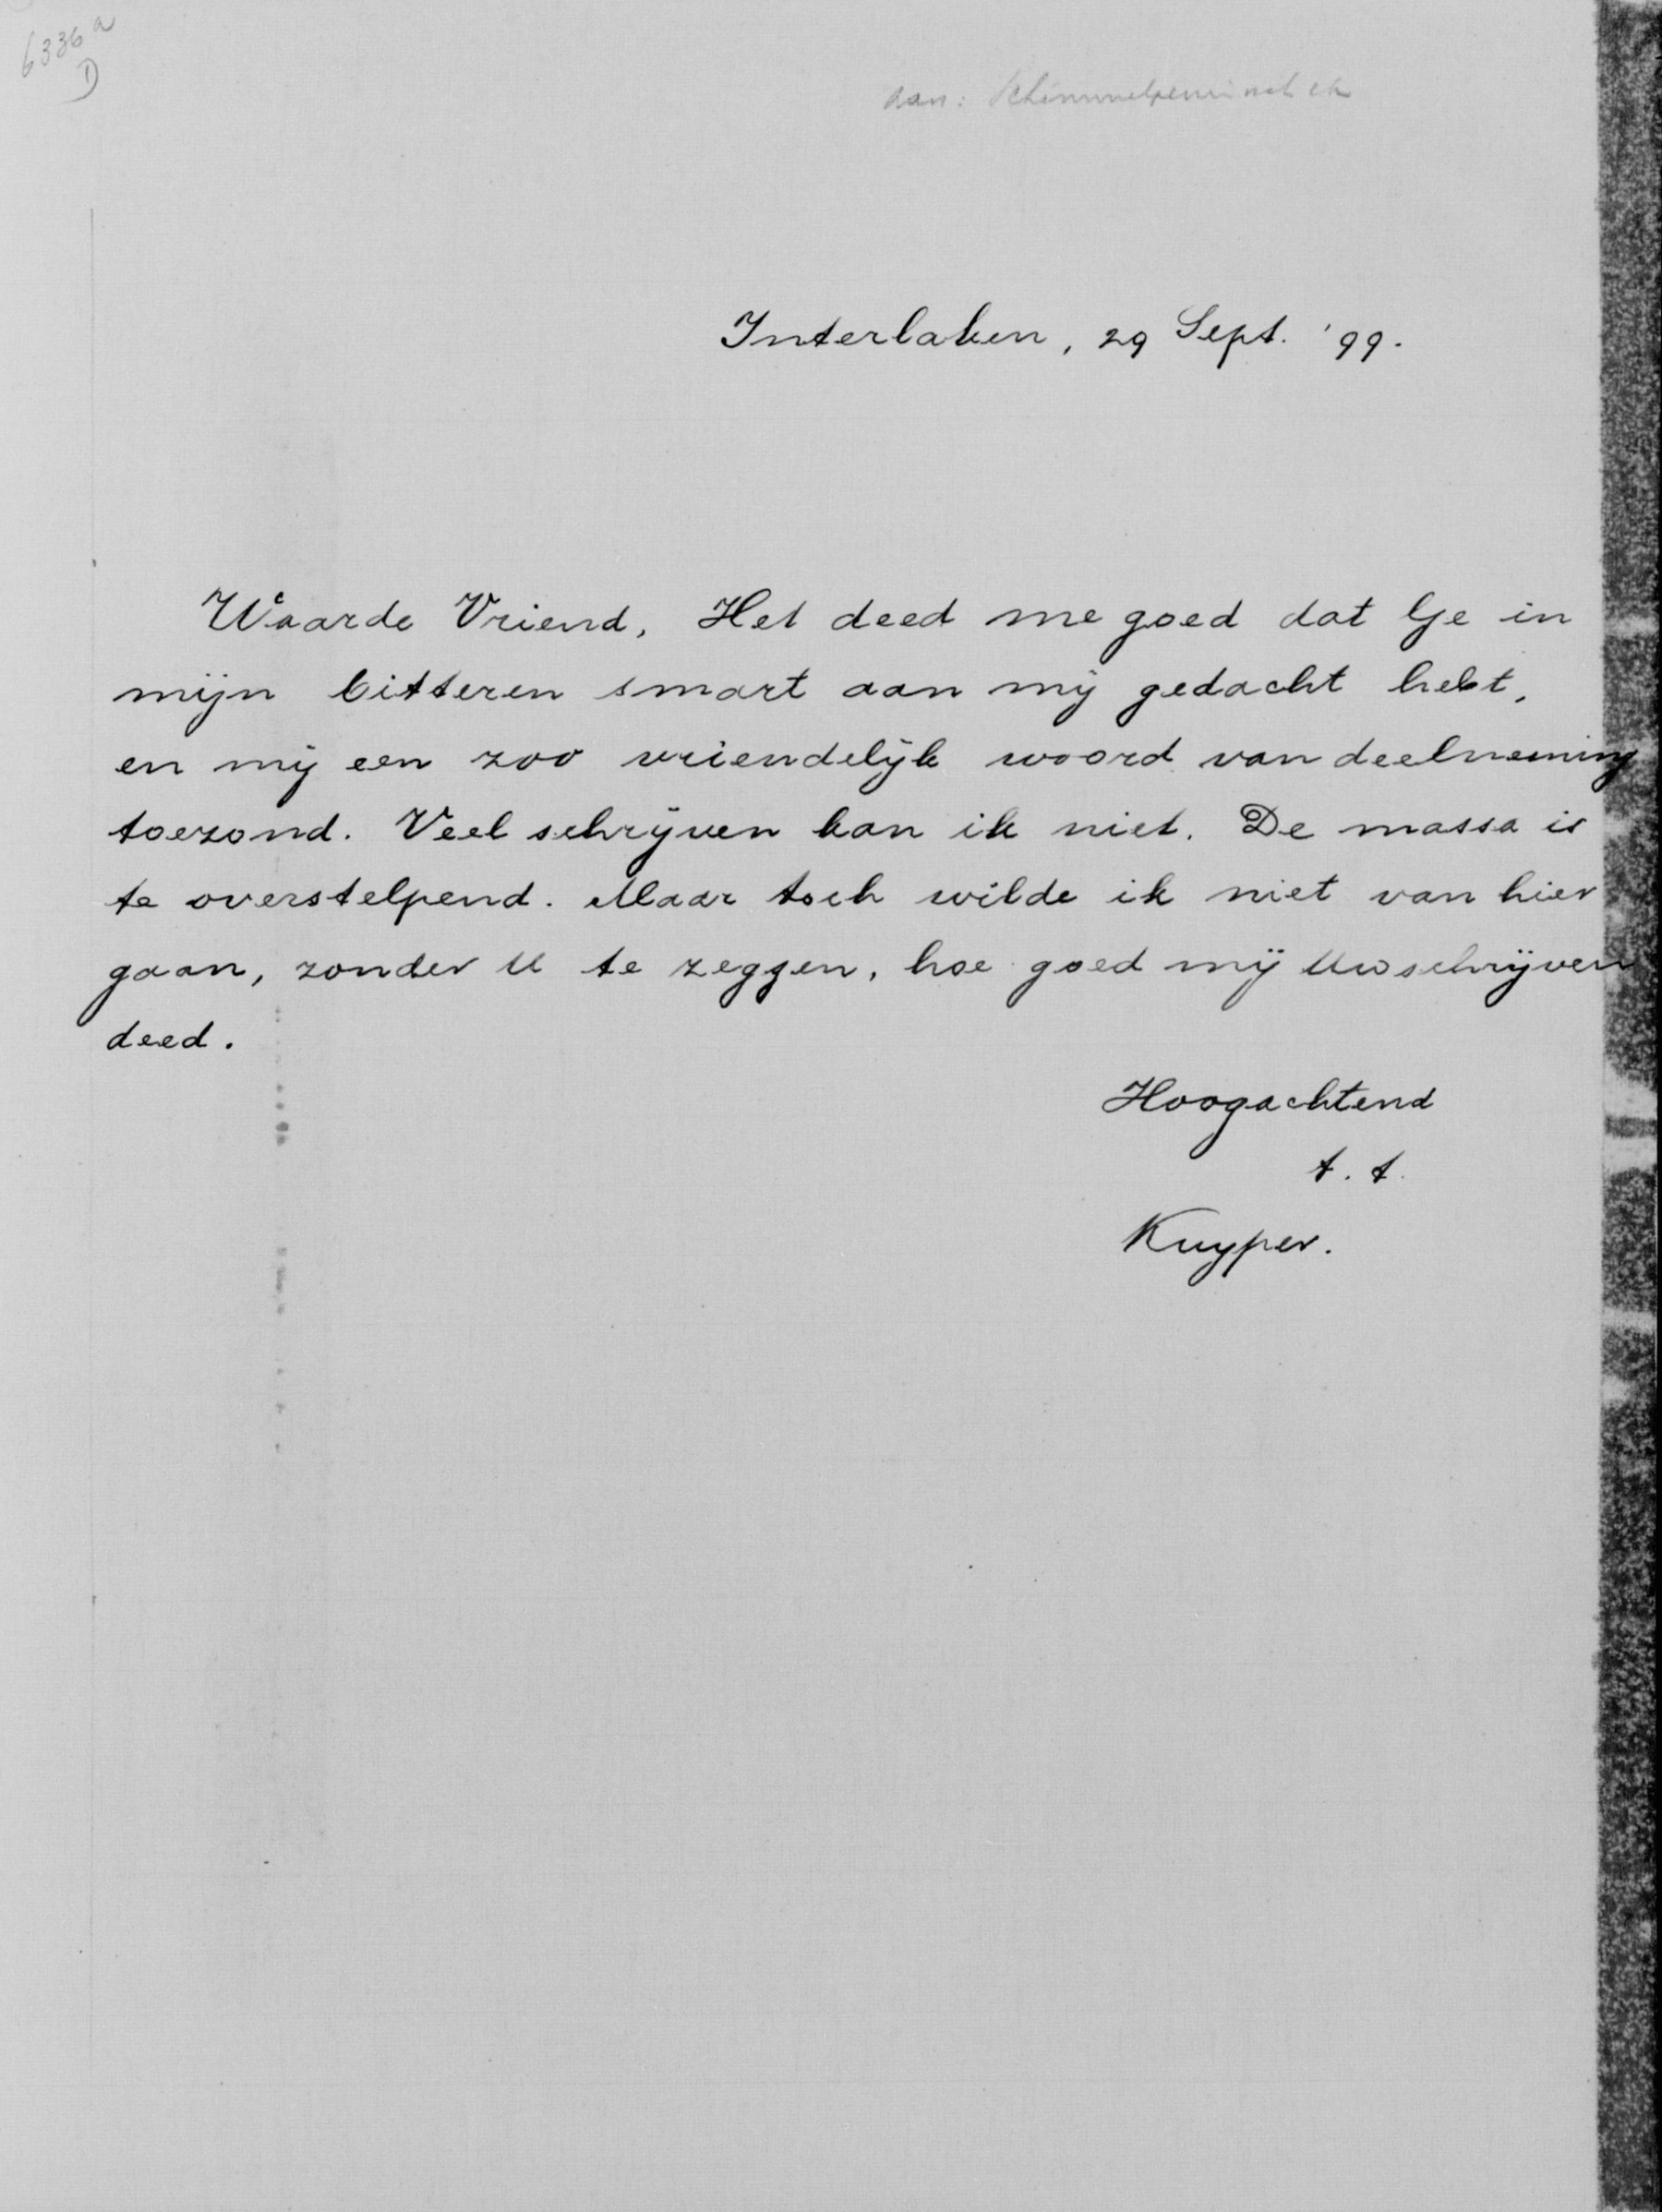 6336 a
D
aan: Schimmelpenninck
Interlaken, 29 Sept. '99.
Waarde Vriend, Het deed me goed dat Ge in
mijn bitteren smart aan mij gedacht hebt,
en mij een zoo vriendelijk woord van deelneming
toezond. Veel schrijven kan ik niet. De massa is
te overstelpend. Maar toch wilde ik niet van hier
gaan, zonder U te zeggen, hoe goed mij Uw schrijven
deed.
Hoogachtend
t. t.
Kuyper.